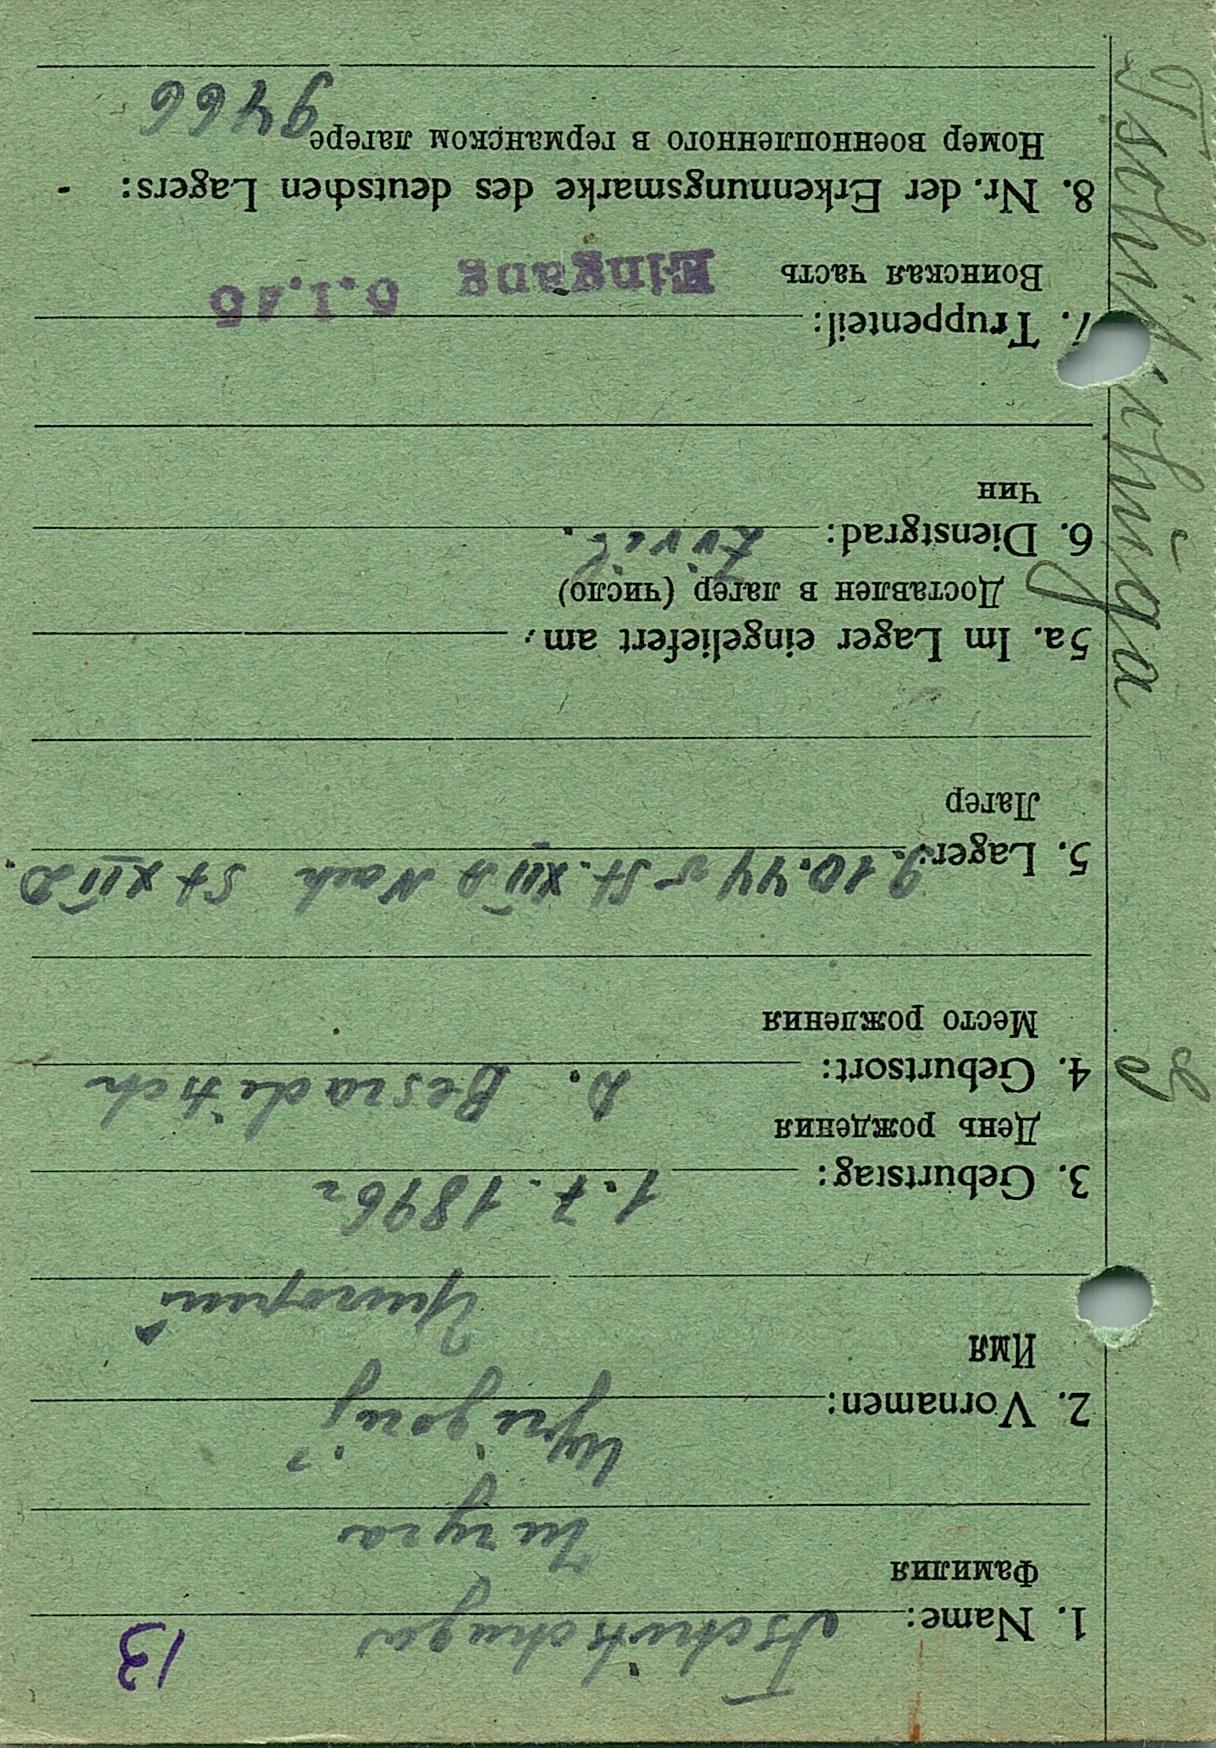 13
1. Name: Tschitschuga
Фамилия
Чичуга
2. Vornamen: Grigorij
Имя
Григорий
3. Geburtstag: 1.7.1896
День рождения
4. Geburtsort: D. Besraditsch
Место рождения
5. Lager: 9.10.44 v St. XII A Nach St XII D.
Лагер
5a. Im Lager eingeliefert am:
Доставлен в лагер (число)
6. Dienstgrad: Zivil.
Чин
7. Truppenteil:
Воинская часть
Eingang 6.1.45
8. Nr. der Erkennungsmarke des deutschen Lagers: -
Номер военнопленного в германском лагере 9466
Tschitschuga